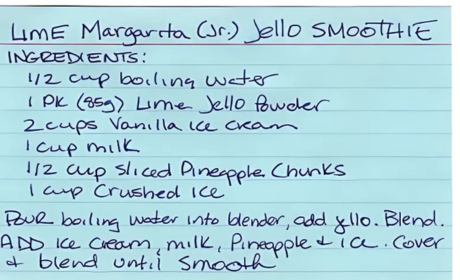 LIME Margarita (Jr.) Jello SMOOTHIE
INGREDIENTS:
1/2 cup boiling water
1 PK (85g) Lime Jello Powder
2 cups Vanilla ice cream
1 cup milk
1/2 cup sliced Pineapple Chunks
1 cup Crushed ice
POUR boiling water into blender, add jello. Blend.
ADD ice cream, milk, Pineapple + ice. Cover
+ blend until smooth